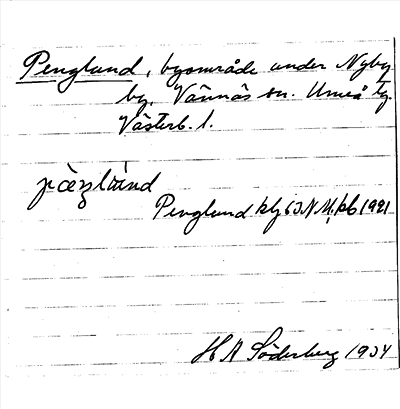 Penglund, byområde under Nyby
by, Vännäs sn. Umeå tg.
Västerb. l.
Penglund klj 63 NV, kb 1921
H A Söderberg 1934